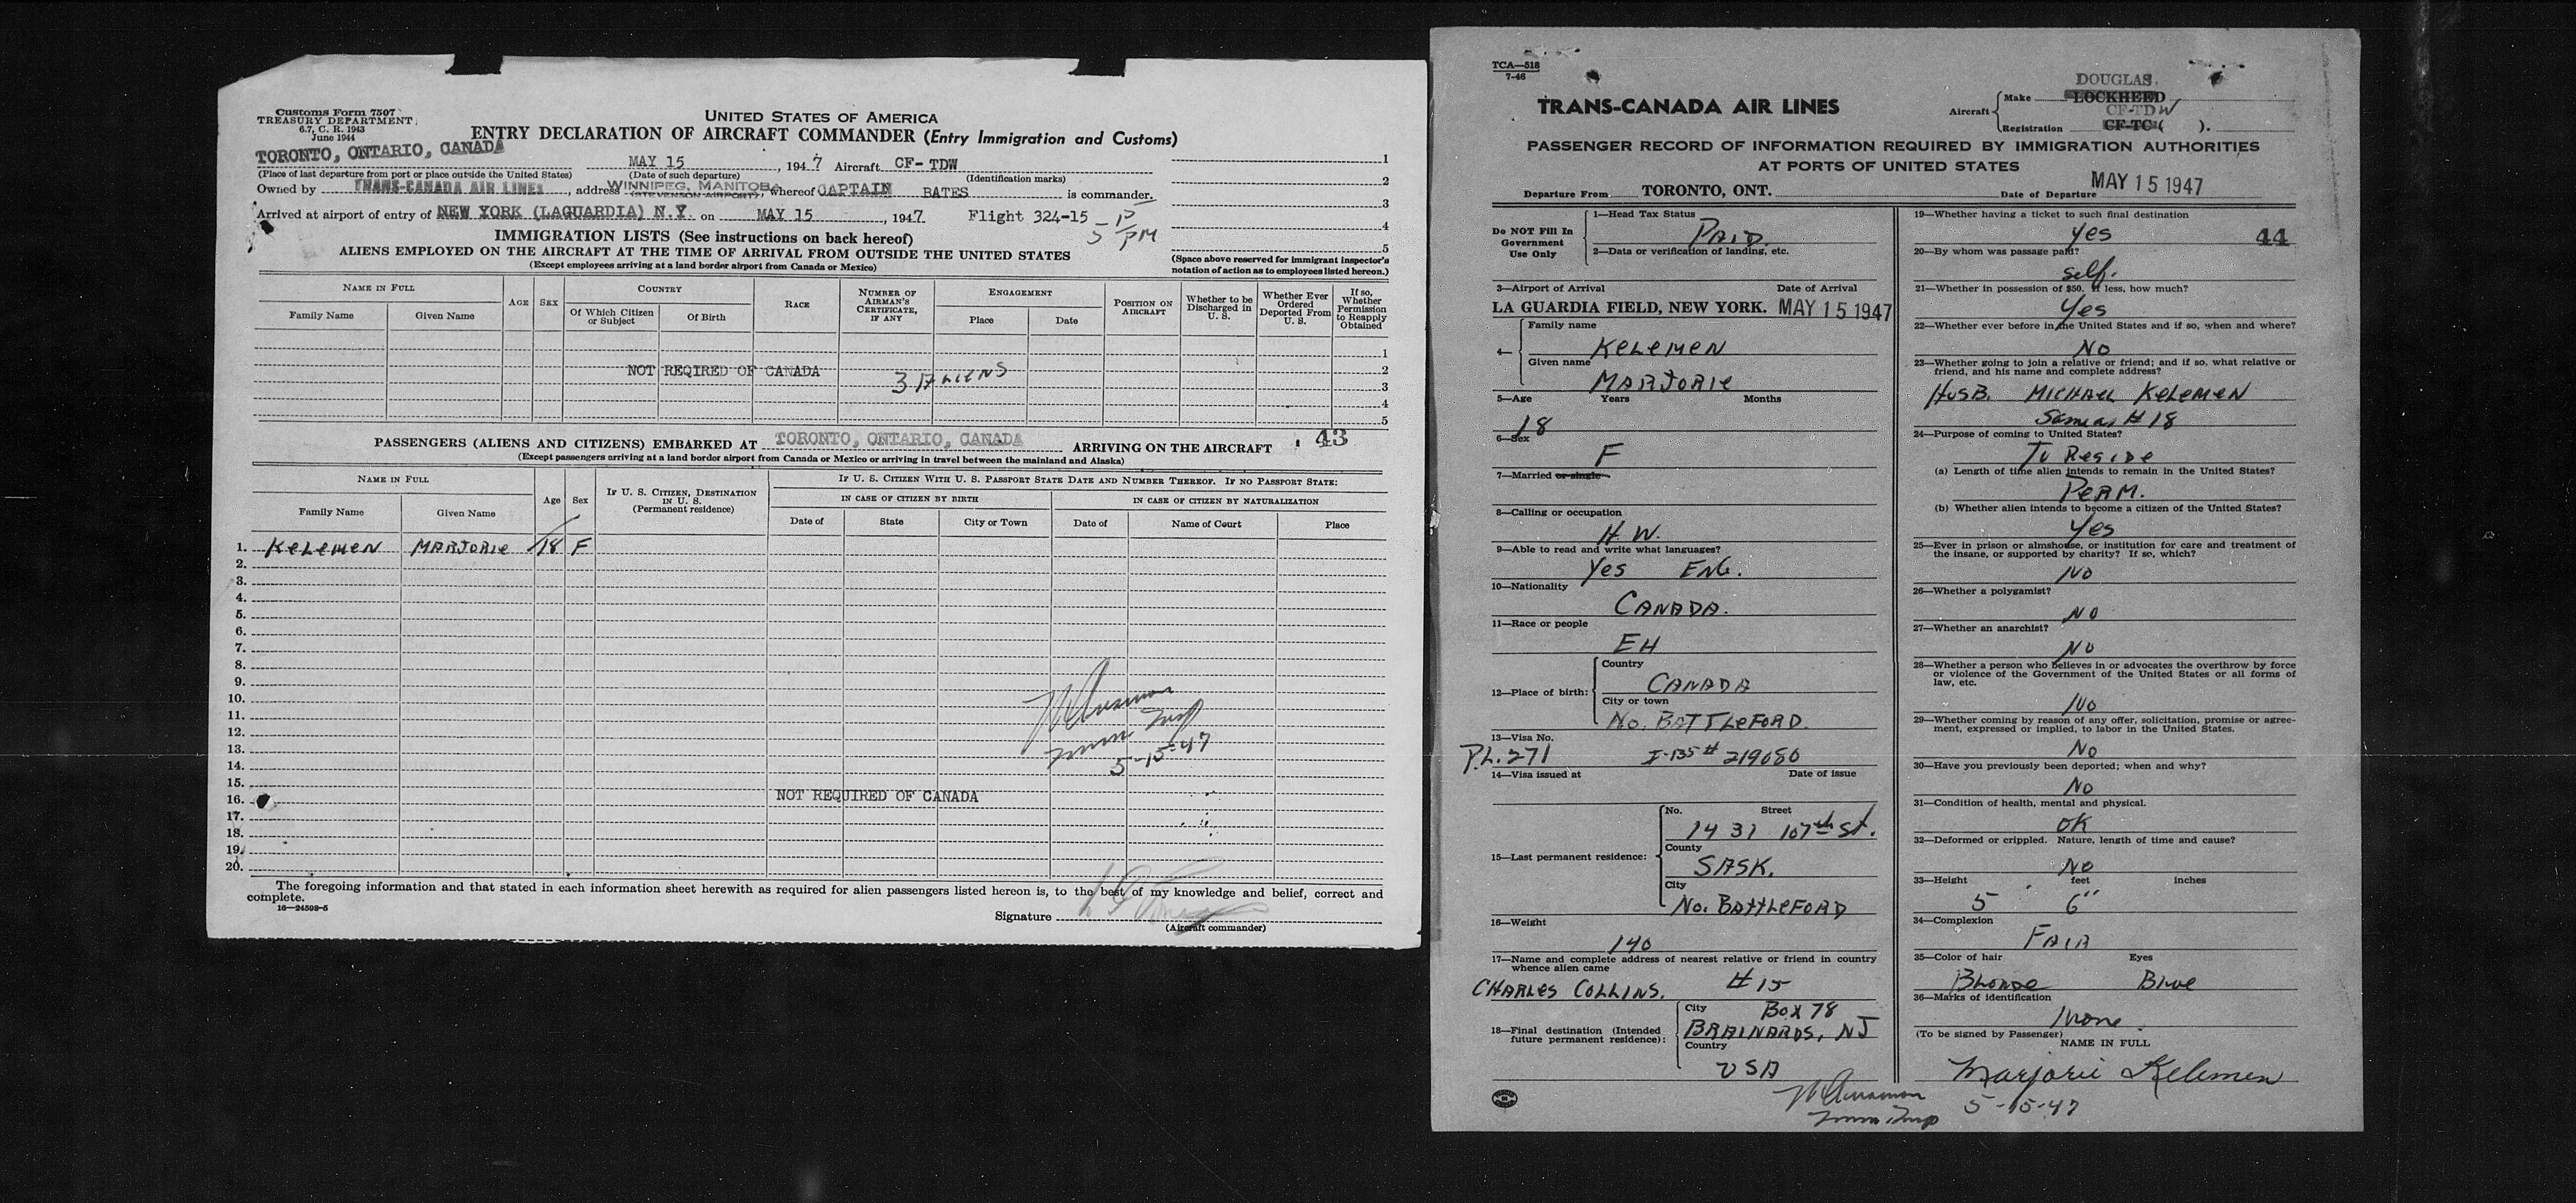 Customs Form 7507
TREASURY DEPARTMENT
6.7, C. R. 1943
June 1944
UNITED STATES OF AMERICA
ENTRY DECLARATION OF AIRCRAFT COMMANDER (Entry Immigration and Customs)
TORONTO, ONTARIO, CANADA MAY 15, 1947 Aircraft CF-TDW
(Place of last departure from port or place outside the United States) (Date of such departure) (Identification marks)
Owned by TRANS-CANADA AIR LINES, address WINNIPEG, MANITOBA (STEVENSON AIRPORT), whereof CAPTAIN BATES is commander.
Arrived at airport of entry of NEW YORK (LAGUARDIA) N.Y. on MAY 15, 1947 Flight 324-15
PM
1
2
3
4
5
(Space above reserved for immigrant inspector's notation of action as to employees listed hereon.)
IMMIGRATION LISTS (See instructions on back hereof)
ALIENS EMPLOYED ON THE AIRCRAFT AT THE TIME OF ARRIVAL FROM OUTSIDE THE UNITED STATES
(Except employees arriving at a land border airport from Canada or Mexico)
NAME IN FULL
Family Name Given Name
AGE SEX
COUNTRY
Of Which Citizen or Subject Of Birth
RACE
NUMBER OF AIRMAN'S CERTIFICATE, IF ANY
ENGAGEMENT
Place Date
POSITION ON AIRCRAFT
Whether to be Discharged in U. S.
Whether Ever Ordered Deported From U. S.
If so, Whether Permission to Reapply Obtained
1
NOT REQIRED OF CANADA 2
3 ALIENS 3
4
5
PASSENGERS (ALIENS AND CITIZENS) EMBARKED AT TORONTO, ONTARIO, CANADA ARRIVING ON THE AIRCRAFT 43
(Except passengers arriving at a land border airport from Canada or Mexico or arriving in travel between the mainland and Alaska)
NAME IN FULL
Family Name Given Name
Age Sex
IF U. S. CITIZEN, DESTINATION IN U. S. (Permanent residence)
IF U. S. CITIZEN WITH U. S. PASSPORT STATE DATE AND NUMBER THEREOF. IF NO PASSPORT STATE:
IN CASE OF CITIZEN BY BIRTH IN CASE OF CITIZEN BY NATURALIZATION
Date of State City or Town Date of Name of Court Place
1. KELEMEN MARJORIE 18 F
2.
3.
4.
5.
6.
7.
8.
9.
10.
11.
12.
13.
5-15-47
14.
15.
16. NOT REQUIRED OF CANADA
17.
18.
19.
20.
The foregoing information and that stated in each information sheet herewith as required for alien passengers listed hereon is, to the best of my knowledge and belief, correct and
complete.
16—24598-5
Signature
(Aircraft commander)
TCA—518
7-46
TRANS-CANADA AIR LINES
DOUGLAS.
Aircraft Make LOCKHEED
CF-TDW
Registration CF-TC ( ).
PASSENGER RECORD OF INFORMATION REQUIRED BY IMMIGRATION AUTHORITIES
AT PORTS OF UNITED STATES
Departure From TORONTO, ONT. Date of Departure MAY 15 1947
Do NOT Fill In Government Use Only
1—Head Tax Status
PAID.
2—Data or verification of landing, etc.
3—Airport of Arrival Date of Arrival
LA GUARDIA FIELD, NEW YORK. MAY 15 1947
4— Family name
KELEMEN
Given name
MARJORIE
5—Age Years Months
18
6—Sex
F
7—Married or single
8—Calling or occupation
H.W.
9—Able to read and write what languages?
Yes ENG.
10—Nationality
CANADA.
11—Race or people
EH
12—Place of birth: Country
CANADA
City or town
No. BATTLEFORD.
13—Visa No.
P.L. 271 I-135# 219080
14—Visa issued at Date of issue
15—Last permanent residence: No. Street
1431 107th St.
County
SASK.
City
No. BATTLEFORD
16—Weight
140
17—Name and complete address of nearest relative or friend in country
whence alien came
CHARLES COLLINS. #15
18—Final destination (Intended future permanent residence): City Box 78
BRAINARDS, NJ
Country
USA
19—Whether having a ticket to such final destination
Yes 44
20—By whom was passage paid?
self.
21—Whether in possession of $50. If less, how much?
Yes
22—Whether ever before in the United States and if so, when and where?
NO
23—Whether going to join a relative or friend; and if so, what relative or
friend, and his name and complete address?
HUSB. MICHAEL KELEMEN
Same as #18
24—Purpose of coming to United States?
To Reside
(a) Length of time alien intends to remain in the United States?
PERM.
(b) Whether alien intends to become a citizen of the United States?
Yes
25—Ever in prison or almshouse, or institution for care and treatment of
the insane, or supported by charity? If so, which?
NO
26—Whether a polygamist?
NO
27—Whether an anarchist?
NO
28—Whether a person who believes in or advocates the overthrow by force
or violence of the Government of the United States or all forms of
law, etc.
NO
29—Whether coming by reason of any offer, solicitation, promise or agree-
ment, expressed or implied, to labor in the United States.
NO
30—Have you previously been deported; when and why?
NO
31—Condition of health, mental and physical.
OK
32—Deformed or crippled. Nature, length of time and cause?
NO
33—Height feet inches
5 6"
34—Complexion
FAIR
35—Color of hair Eyes
Blonde Blue
36—Marks of identification
None.
(To be signed by Passenger)
NAME IN FULL
Marjorie Kelemen
5-15-47